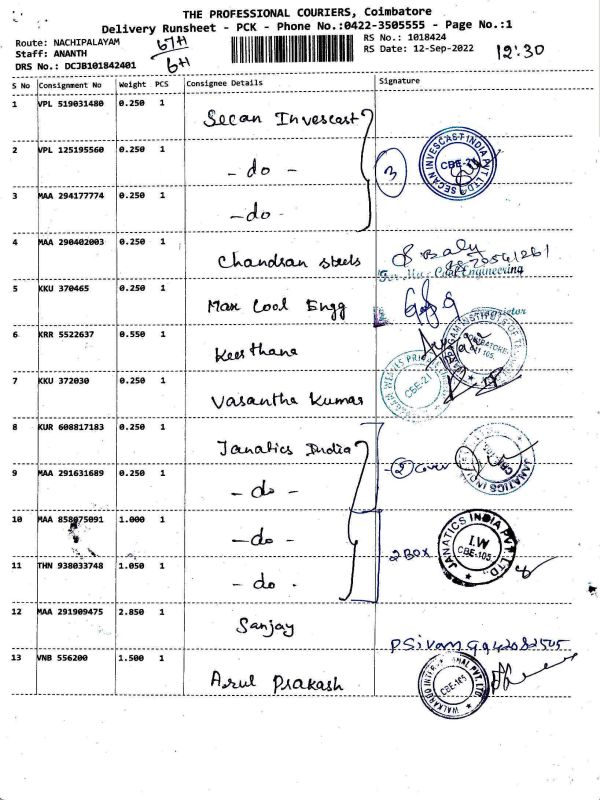 THE PROFESSIONAL COURIERS, Coimbatore
Delivery Runsheet - PCK - Phone No.:0422-3505555 - Page No.:1
Route: NACHIPALAYAM
Staff: ANANTH
DRS No.: DCJB101842401
67H
6H
RS No.: 1018424
RS Date: 12-Sep-2022
12:30
S No Consignment No Weight PCS Consignee Details Signature
1 VPL 519031480 0.250 1 Secan Invescast
2 VPL 125195560 0.250 1 - do - 3
SECAN INVESCAST INDIA PVT LTD CBE-21
3 MAA 294177774 0.250 1 - do -
4 MAA 290402003 0.250 1 Chandran steels
Cool Engineering
5 KKU 370465 0.250 1 Max Cool Engg
6 KRR 5522637 0.550 1 Keerthana
7 KKU 372030 0.250 1 Vasantha Kumar
CBE-21
8 KUR 608817183 0.250 1 Janatics India
9 MAA 291631689 0.250 1 - do - 2 cover
JANATICS INDIA
10 MAA 858075091 1.000 1 - do -
11 THN 938033748 1.050 1 - do - 2 BOX
JANATICS INDIA PVT. LTD. I.W CBE-105
12 MAA 291909475 2.850 1 Sanjay
13 VNB 556200 1.500 1 Arul Prakash
WALKAROO INTERNATIONAL PVT. LTD. CBE-105